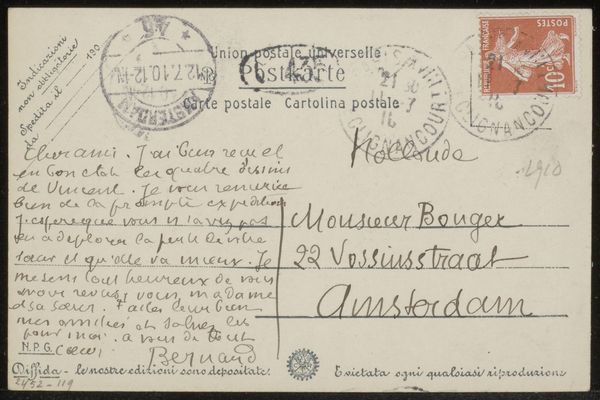 Indicazioni
non obbligatorie
da Spedita il
190
AMSTERDAM
12.7.10.12
Union postale universelle
Postkarte
Carte postale Cartolina postale
POSTES
10
CLIGNANCOURT
Hollande
1910
Cher ami. J'ai bien reçu et
en bon état les quatre dessins
de Vincent. Je vous remercie
bien de la prompte expedition
J'espere que vous n'avez pas
eu a deplorer la perte de votre
soeur et qu'elle va mieux. Je
me sens tout heureux de vous
avoir revus, vous, madame
et sa soeur. Faites leur bien
mes amitiés et saluez les
pour moi. a vous de tout
coeur
Bernard
Monsieur Bonger
22 Vossiusstraat
Amsterdam
N.P.G.
Diffida - le nostre edizioni sono depositate.
E vietata ogni qualsiasi riproduzione
2452-119